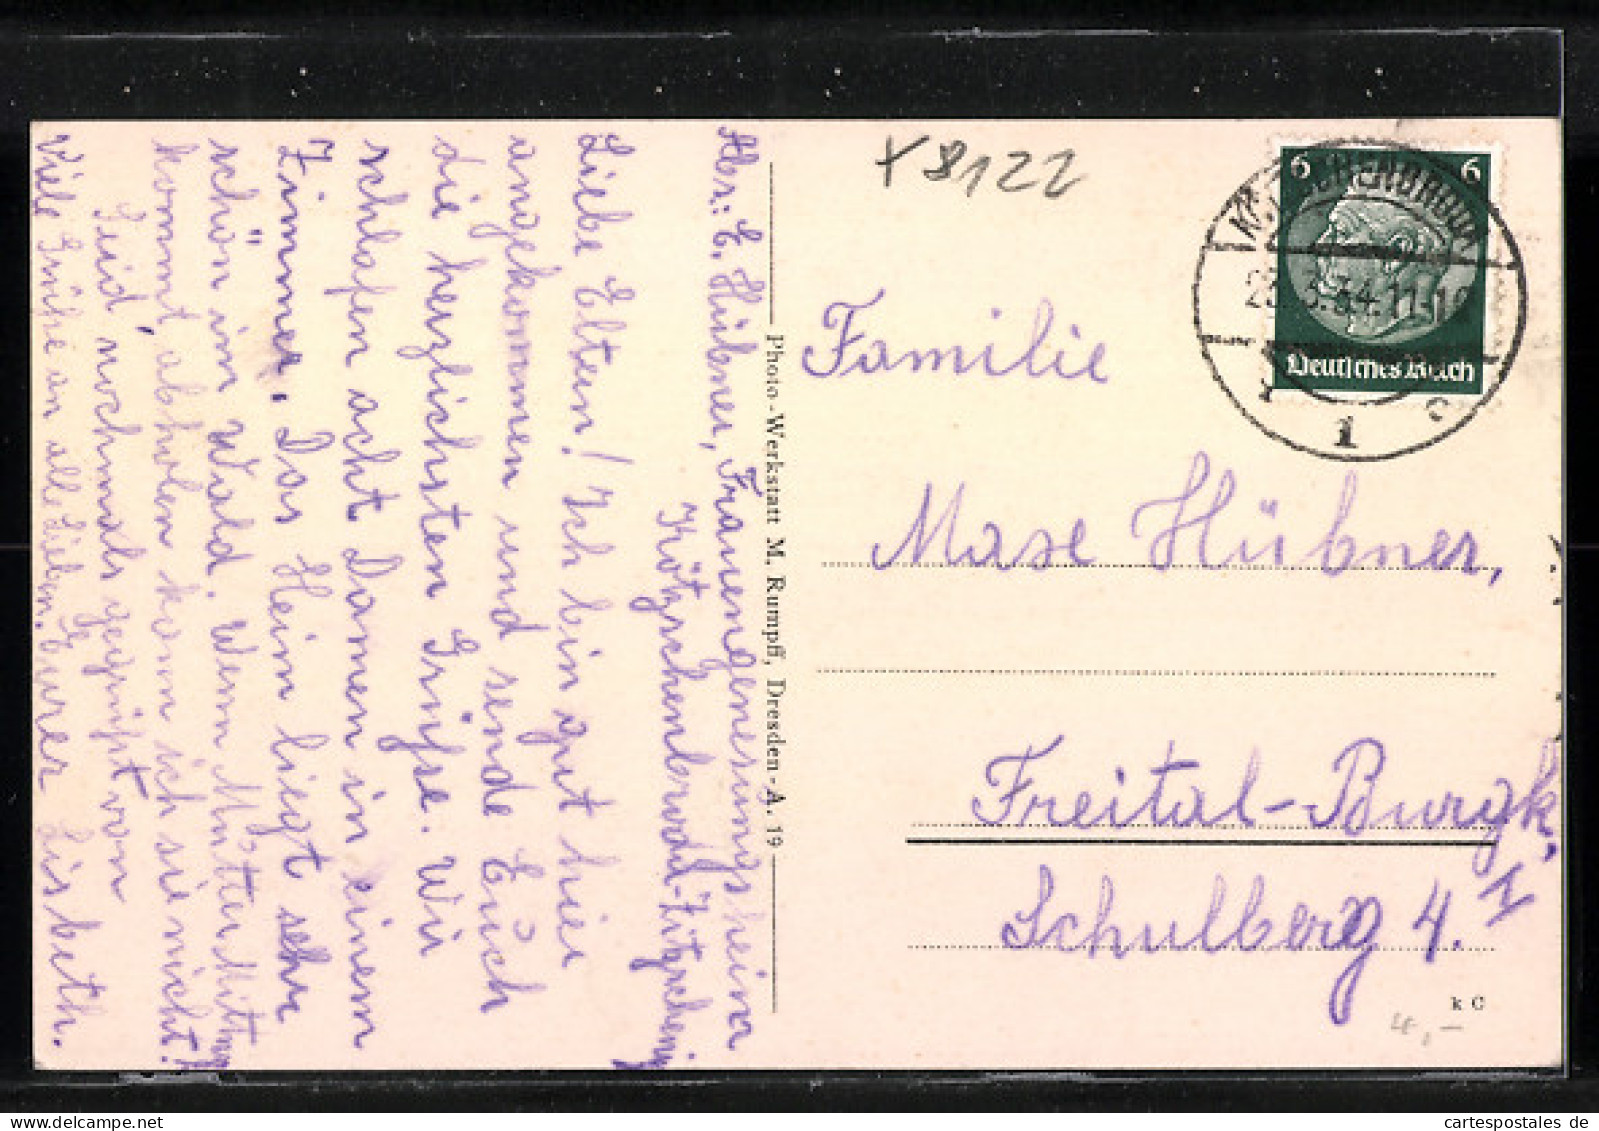 Abs.: E. Hübner, Frauengenesungsheim
Kötzschenbroda-Zitzschewig
Liebe Eltern! Ich bin gut hier
angekommen und sende Euch
die herzlichsten Grüße. Wir
schlafen acht Damen in einem
Zimmer. Das Heim liegt sehr
schön im Wald. Wenn Mutter Mittwoch
kommt, abholen kann ich sie nicht!
Seid nochmals gegrüßt von
Viele Grüße an alle Lieben. Eurer Lisbeth.
Photo-Werkstatt M. Rumpff, Dresden-A. 19
x 8122
6 6
Deutsches Reich
KÖTZSCHENBRODA
3.34.11-12
1 c
Familie
Maxe Hübner,
Freital-Burgk.
Schulberg 4. I
k C
4,-
cartespostales.de